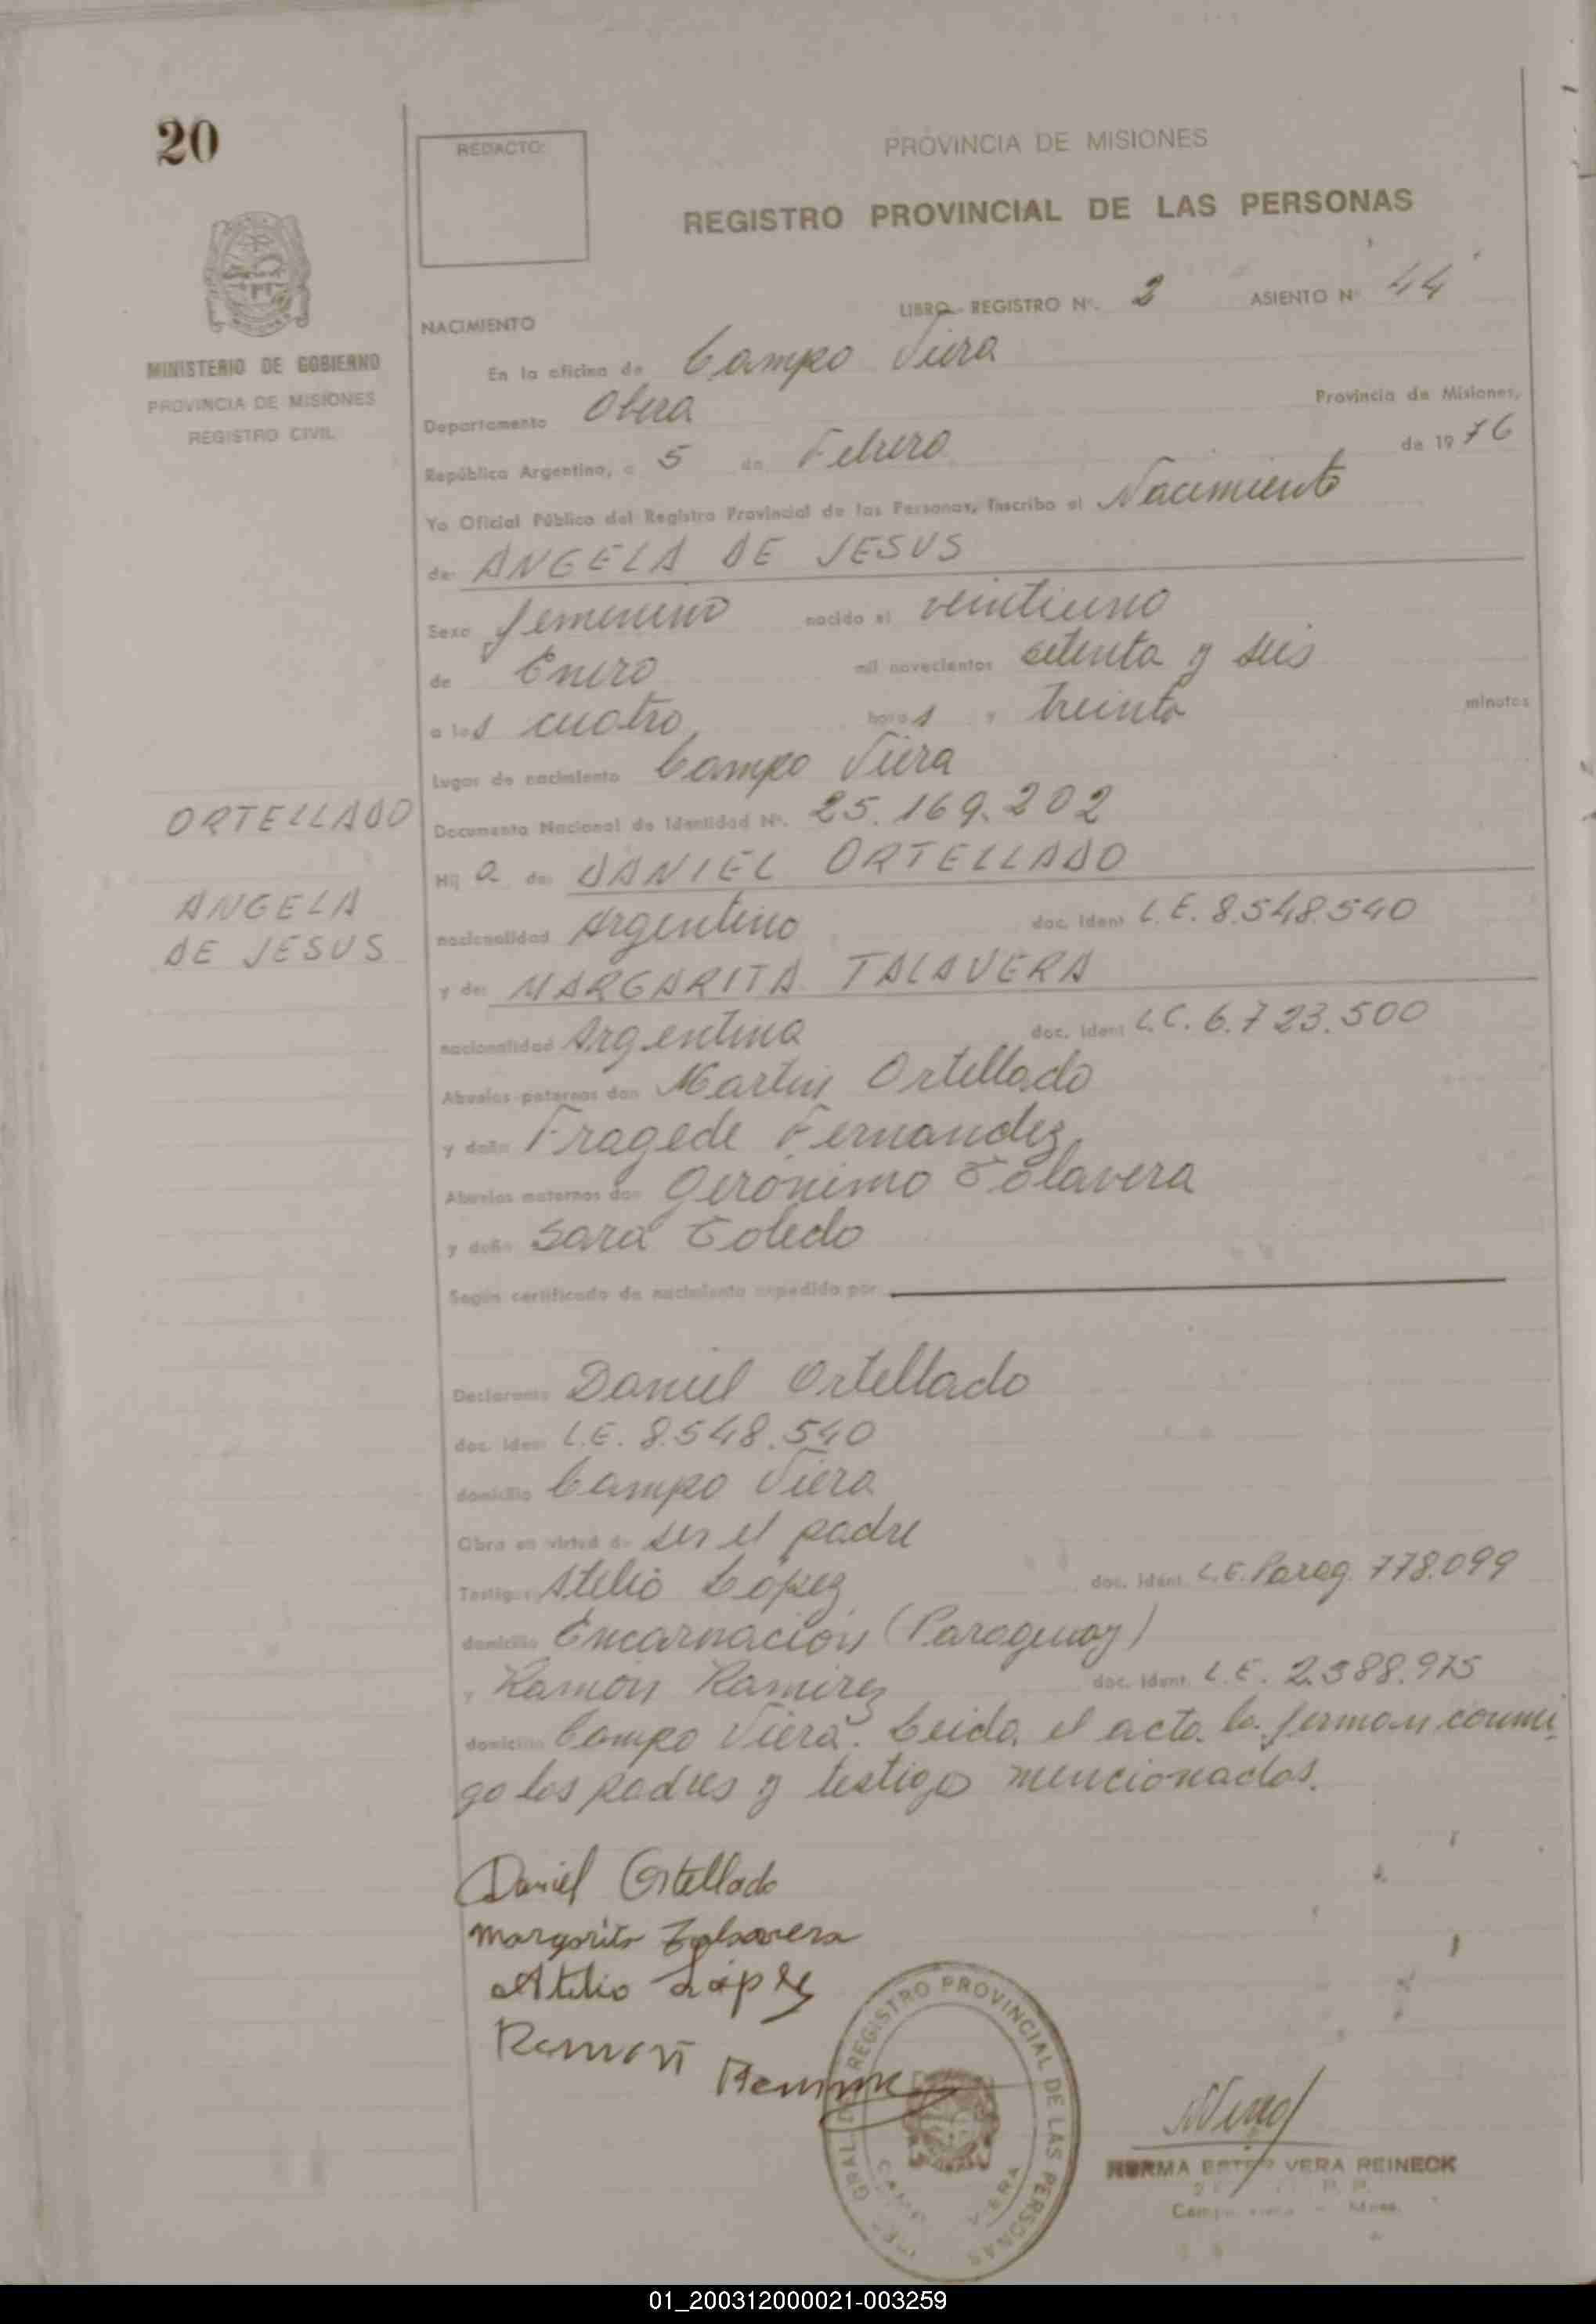 20
REDACTO:
PROVINCIA DE MISIONES
REGISTRO PROVINCIAL DE LAS PERSONAS
MINISTERIO DE GOBIERNO
PROVINCIA DE MISIONES
REGISTRO CIVIL
LIBRO - REGISTRO Nº. 2 ASIENTO Nº 44
NACIMIENTO
En la oficina de Campo Viera
Departamento Obera Provincia de Misiones,
República Argentina, a 5 de Febrero de 1976
Yo Oficial Público del Registro Provincial de las Personas, Inscribo el Nacimiento
de: ANGELA DE JESUS
Sexo femenino nacido el veintiuno
de Enero mil novecientos setenta y seis
a las cuatro horas y treinta minutos
Lugar de nacimiento Campo Viera
ORTELLADO
ANGELA
DE JESUS
Documento Nacional de Identidad Nº. 25.169.202
Hija de: DANIEL ORTELLADO
nacionalidad Argentino doc. ident L.E. 8.548.540
y de: MARGARITA TALAVERA
nacionalidad Argentina doc. ident L.C. 6.723.500
Abuelos paternos don Martin Ortellado
y doña Fragede Fernandez
Abuelos maternos don Gerónimo Talavera
y doña Sara Toledo
Según certificado de nacimiento expedido por
Declarante Daniel Ortellado
doc. iden L.E. 8.548.540
domicilio Campo Viera
Obra en virtud de ser el padre
Testigos Atelio Lopez doc. ident. C.E. Parag. 778.099
domicilio Encarnación (Paraguay)
y Ramón Ramirez doc. ident. L.E. 2.388.975
domicilio Campo Viera. Leida el acta la firman conmi
go los padres y testigo mencionados.
Daniel Ortellado
Margarita Talavera
Atelio López
Ramón
GRAL. DEL REGISTRO PROVINCIAL DE LAS PERSONAS
NORMA ESTER VERA REINECK
01_200312000021-003259